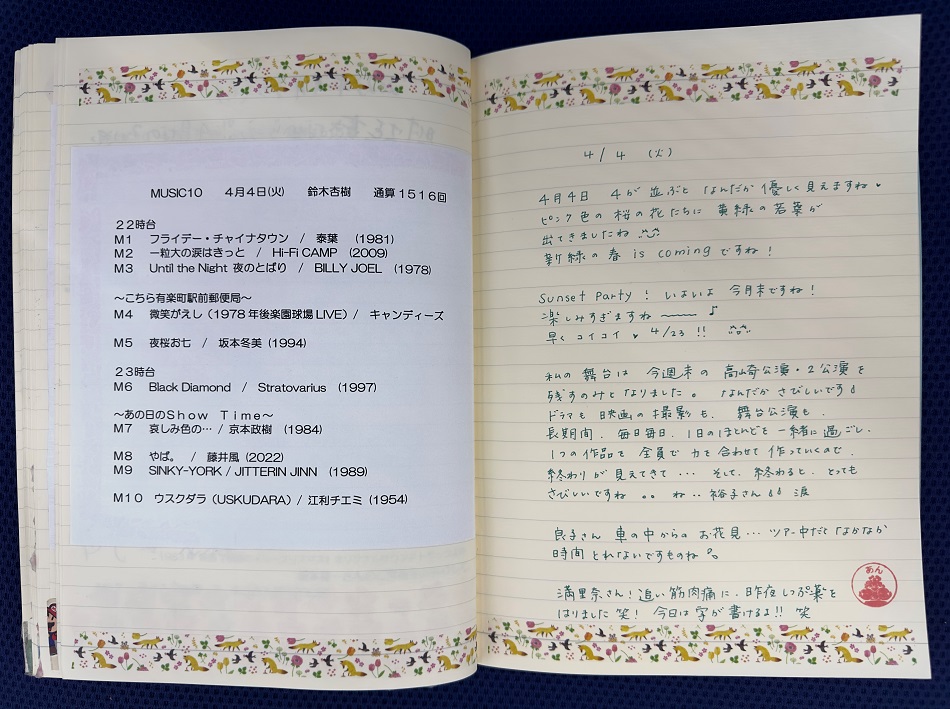 MUSIC10 4月4日(火) 鈴木杏樹 通算1516回
22時台
M1 フライデー・チャイナタウン / 泰葉 (1981)
M2 一粒大の涙はきっと / Hi-Fi CAMP (2009)
M3 Until the Night 夜のとばり / BILLY JOEL (1978)
～こちら有楽町駅前郵便局～
M4 微笑がえし(1978年後楽園球場LIVE) / キャンディーズ
M5 夜桜お七 / 坂本冬美 (1994)
23時台
M6 Black Diamond / Stratovarius (1997)
～あの日のShow Time～
M7 哀しみ色の… / 京本政樹 (1984)
M8 やば。 / 藤井風 (2022)
M9 SINKY-YORK / JITTERIN JINN (1989)
M10 ウスクダラ(USKUDARA) / 江利チエミ (1954)
4/4 (火)
4月4日 4が並ぶと なんだか優しく見えますね
ピンク色の桜の花たちに 黄緑の若葉が
出てきましたね
新緑の春 is coming ですね!
Sunset Party! いよいよ 今月末ですね!
楽しみすぎますね〜〜〜♪
早くコイコイ ♥ 4/23 !!
私の舞台は 今週末の 高崎公演・2公演を
残すのみとなりました。 なんだか さびしいです
ドラマも 映画の撮影も、舞台公演も、
長期間、毎日毎日、1日のほとんどを一緒に過ごし、
1つの作品を 全員で 力を合わせて 作っていくので、
終わりが見えてきて… そして、終わると、とっても
さびしいですね 。。 ね.. 裕子さん 涙
良子さん 車の中からの お花見… ツアー中だと なかなか
時間 とれないですものね
満里奈さん! 追い筋肉痛に、昨夜しっぷ薬を
はりました 笑! 今日は字が書けるよ!! 笑
あん